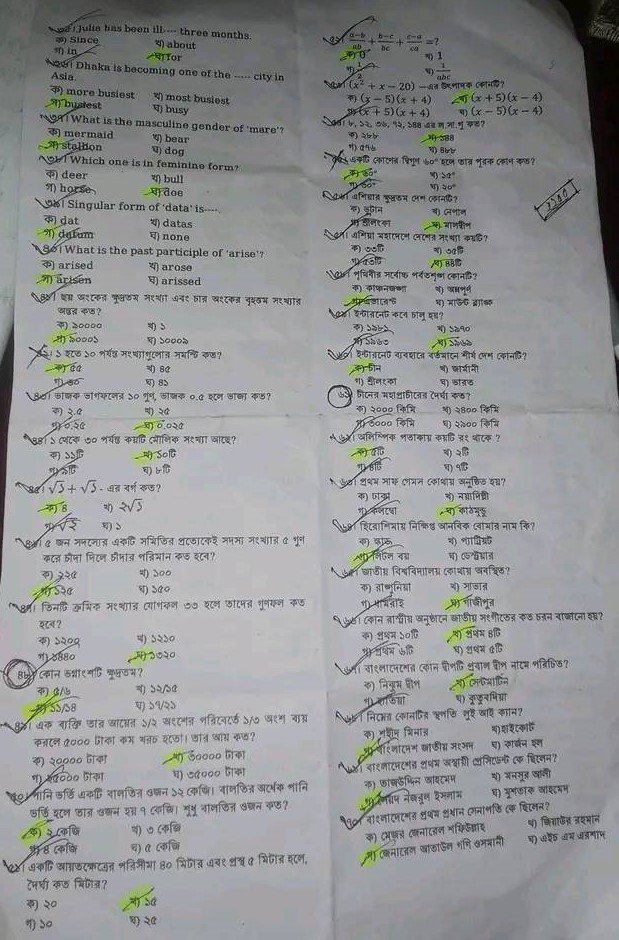 ৩৫। Julie has been ill---- three months.
ক) Since খ) about
গ) in ঘ) for
৩৬। Dhaka is becoming one of the ..... city in
Asia.
ক) more busiest খ) most busiest
গ) busiest ঘ) busy
৩৭। What is the masculine gender of 'mare'?
ক) mermaid খ) bear
গ) stallion ঘ) dog
৩৮। Which one is in feminine form?
ক) deer খ) bull
গ) horse ঘ) doe
৩৯। Singular form of 'data' is----.
ক) dat খ) datas
গ) datum ঘ) none
৪০। What is the past participle of 'arise'?
ক) arised খ) arose
গ) arisen ঘ) arissed
৪১। ছয় অংকের ক্ষুদ্রতম সংখ্যা এবং চার অংকের বৃহত্তম সংখ্যার
অন্তর কত?
ক) ৯০০০০ খ) ১
গ) ৯০০০১ ঘ) ১০০০৯
৪২। ১ হতে ১০ পর্যন্ত সংখ্যাগুলোর সমষ্টি কত?
ক) ৫৫ খ) ৪৫
গ) ৩০ ঘ) ৪১
৪৩। ভাজক ভাগফলের ১০ গুণ, ভাজক ০.৫ হলে ভাজ্য কত?
ক) ২.৫ খ) ২৫
গ) ০.২৫ ঘ) ০.০২৫
৪৪। ১ থেকে ৩০ পর্যন্ত কয়টি মৌলিক সংখ্যা আছে?
ক) ১১টি খ) ১০টি
গ) ৯টি ঘ) ৮টি
৪৫। √১ + √১ - এর বর্গ কত?
ক) ৪ খ) ২√১
গ) √২ ঘ) ১
৪৬। ৫ জন সদস্যের একটি সমিতির প্রত্যেকেই সদস্য সংখ্যার ৫ গুণ
করে চাঁদা দিলে চাঁদার পরিমান কত হবে?
ক) ২২৫ খ) ১০০
গ) ১২৫ ঘ) ১৫০
৪৭। তিনটি ক্রমিক সংখ্যার যোগফল ৩৩ হলে তাদের গুণফল কত
হবে?
ক) ১২০০ খ) ১২১০
গ) ১৪৪০ ঘ) ১৩২০
৪৮। কোন ভগ্নাংশটি ক্ষুদ্রতম?
ক) ৫/৬ খ) ১২/১৫
গ) ১১/১৪ ঘ) ১৭/২১
৪৯। এক ব্যক্তি তার আয়ের ১/২ অংশের পরিবর্তে ১/৩ অংশ ব্যয়
করলে ৫০০০ টাকা কম খরচ হতো। তার আয় কত?
ক) ২০০০০ টাকা খ) ৩০০০০ টাকা
গ) ২৫০০০ টাকা ঘ) ৩৫০০০ টাকা
৫০। পানি ভর্তি একটি বালতির ওজন ১২ কেজি। বালতির অর্ধেক পানি
ভর্তি হলে তার ওজন হয় ৭ কেজি। শুধু বালতির ওজন কত?
ক) ২ কেজি খ) ৩ কেজি
গ) ৪ কেজি ঘ) ৫ কেজি
৫১। একটি আয়তক্ষেত্রের পরিসীমা ৪০ মিটার এবং প্রস্থ ৫ মিটার হলে,
দৈর্ঘ্য কত মিটার?
ক) ২০ খ) ১৫
গ) ১০ ঘ) ২৫
৫২। (a-b)/ab + (b-c)/bc + (c-a)/ca = ?
ক) 0 খ) 1
গ) 1/2 ঘ) 1/abc
৫৩। (x² + x - 20) —এর উৎপাদক কোনটি?
ক) (x - 5)(x + 4) খ) (x + 5)(x - 4)
গ) (x + 5)(x + 4) ঘ) (x - 5)(x - 4)
৫৪। ৮, ১২, ৩৬, ৭২, ১৪৪ এর ল.সা.গু কত?
ক) ২৮৮ খ) ১৪৪
গ) ৫৭৬ ঘ) ৪৮৮
৫৫। একটি কোণের দ্বিগুণ ৬০° হলে তার পূরক কোণ কত?
ক) ৬০° খ) ১৫°
গ) ৩০° ঘ) ২০°
৫৬। এশিয়ার ক্ষুদ্রতম দেশ কোনটি?
ক) ভুটান খ) নেপাল
গ) শ্রীলংকা ঘ) মালদ্বীপ
৫৭। এশিয়া মহাদেশে দেশের সংখ্যা কয়টি?
ক) ৩৩টি খ) ৩৫টি
গ) ৫৩টি ঘ) ৪৪টি
৫৮। পৃথিবীর সর্বোচ্চ পর্বতশৃঙ্গ কোনটি?
ক) কাঞ্চনজঙ্ঘা খ) অন্নপূর্ণা
গ) এভারেস্ট ঘ) মাউন্ট ব্ল্যাঙ্ক
৫৯। ইন্টারনেট কবে চালু হয়?
ক) ১৯৮১ খ) ১৯৭০
গ) ১৯৬৩ ঘ) ১৯৬৯
৬০। ইন্টারনেট ব্যবহারে বর্তমানে শীর্ষ দেশ কোনটি?
ক) চীন খ) জার্মানী
গ) শ্রীলংকা ঘ) ভারত
৬১। চীনের মহাপ্রাচীরের দৈর্ঘ্য কত?
ক) ২০০০ কিমি খ) ২৪০০ কিমি
গ) ৩০০০ কিমি ঘ) ২৯০০ কিমি
৬২। অলিম্পিক পতাকায় কয়টি রং থাকে ?
ক) ৫টি খ) ২টি
গ) ৪টি ঘ) ৭টি
৬৩। প্রথম সাফ গেমস কোথায় অনুষ্ঠিত হয়?
ক) ঢাকা খ) নয়াদিল্লী
গ) কলম্বো ঘ) কাঠমুন্ডু
৬৪। হিরোশিমায় নিক্ষিপ্ত আনবিক বোমার নাম কি?
খ) প্যাট্রিয়ট
গ) লিটল বয় ঘ) ডেস্ট্রয়ার
৬৫। জাতীয় বিশ্ববিদ্যালয় কোথায় অবস্থিত?
ক) রাঙ্গুনিয়া খ) সাভার
গ) ধামরাই ঘ) গাজীপুর
৬৬। কোন রাস্ট্রীয় অনুষ্ঠানে জাতীয় সংগীতের কত চরন বাজানো হয়?
ক) প্রথম ১০টি খ) প্রথম ৪টি
গ) প্রথম ৬টি ঘ) প্রথম ৫টি
৬৭। বাংলাদেশের কোন দ্বীপটি প্রবাল দ্বীপ নামে পরিচিত?
ক) নিঝুম দ্বীপ খ) সেন্টমার্টিন
গ) হাতিয়া ঘ) কুতুবদিয়া
৬৮। নিম্নের কোনটির স্থপতি লুই আই ক্যান?
ক) শহীদ মিনার খ) হাইকোর্ট
গ) বাংলাদেশ জাতীয় সংসদ ঘ) কার্জন হল
৬৯। বাংলাদেশের প্রথম অস্থায়ী প্রেসিডেন্ট কে ছিলেন?
ক) তাজউদ্দিন আহমেদ খ) মনসুর আলী
গ) সৈয়দ নজরুল ইসলাম ঘ) মুশতাক আহমেদ
৭০। বাংলাদেশের প্রথম প্রধান সেনাপতি কে ছিলেন?
ক) মেজর জেনারেল শফিউল্লাহ খ) জিয়াউর রহমান
গ) জেনারেল আতাউল গণি ওসমানী ঘ) এইচ এম এরশাদ